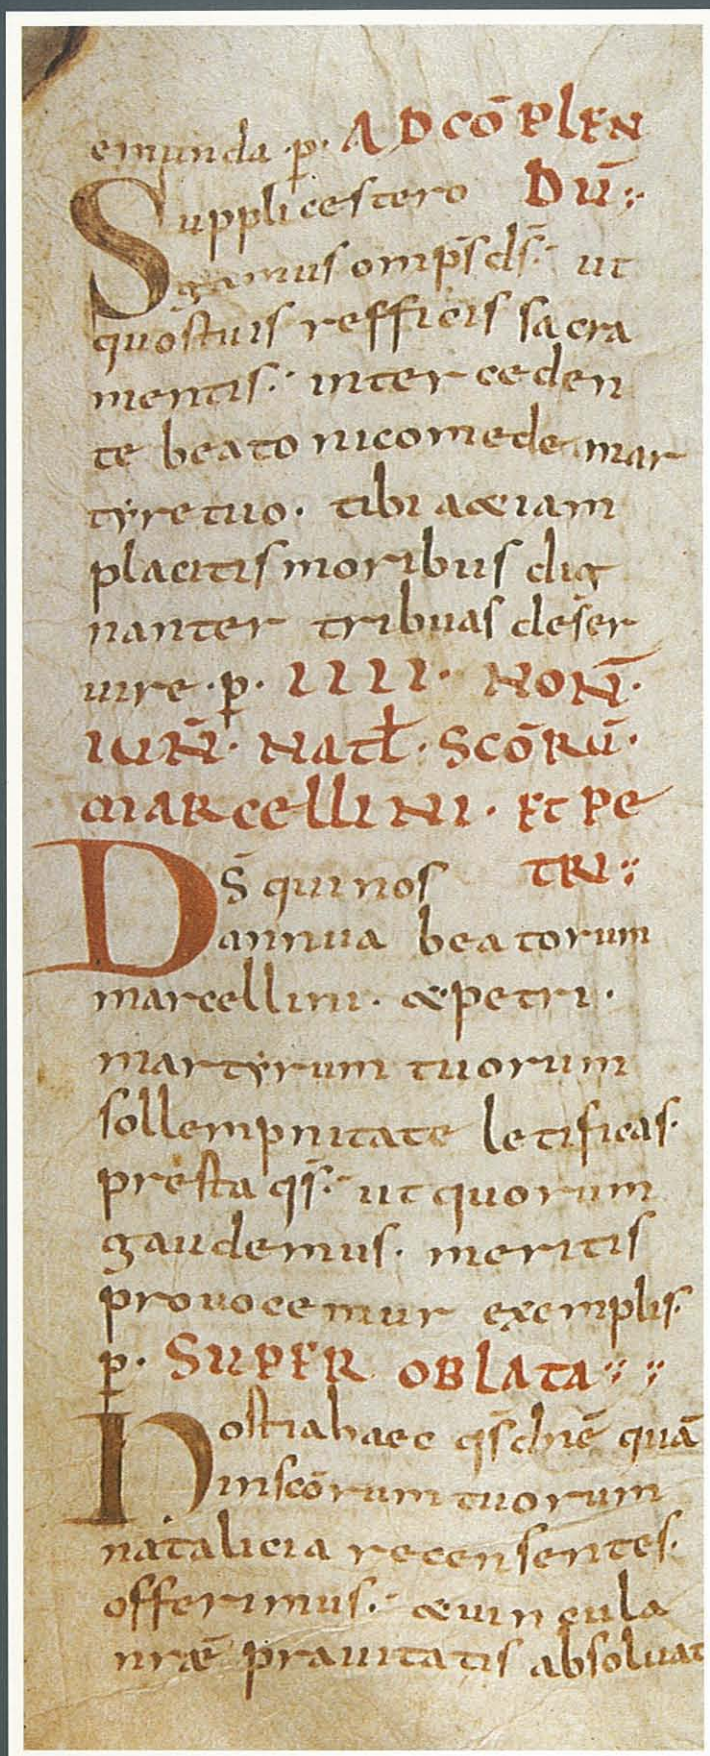 emunda · p · AD COM̄PLEN
Supplices tero DŪ:
gamus omp̄s ds̄ : ut
quos tuis refficis sacra
mentis : interceden
te beato nicomede mar
tyre tuo · tibi & iam
placitis moribus dig
nanter tribuas deser
uire · p · IIII · NON̄ ·
IUN̄ · NATL · SCŌRŪ ·
MARCELLINI · ET PE
DS̄ qui nos TRI :
annua beatorum
marcellini · & petri ·
martyrum tuorum
sollempnitate letificas ·
presta qs̄ : ut quorum
gaudemus · meritis
prouocemur exemplis ·
p · SUPER OBLATA : :
Hostia haec qs̄ dn̄e quā
in scōrum tuorum
natalicia recensentes ·
offerimus : & uincula
nr̄æ prauitatis absoluat